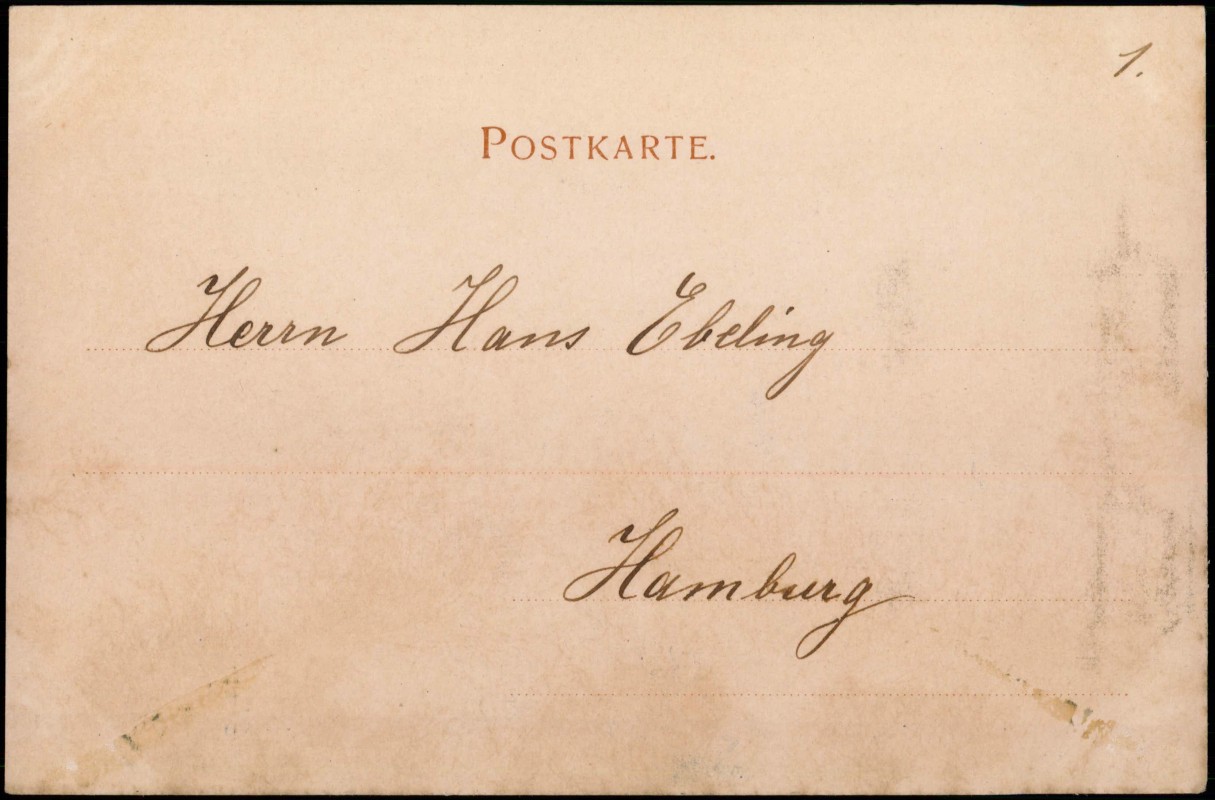 1.
POSTKARTE.
Herrn Hans Ebeling
Hamburg